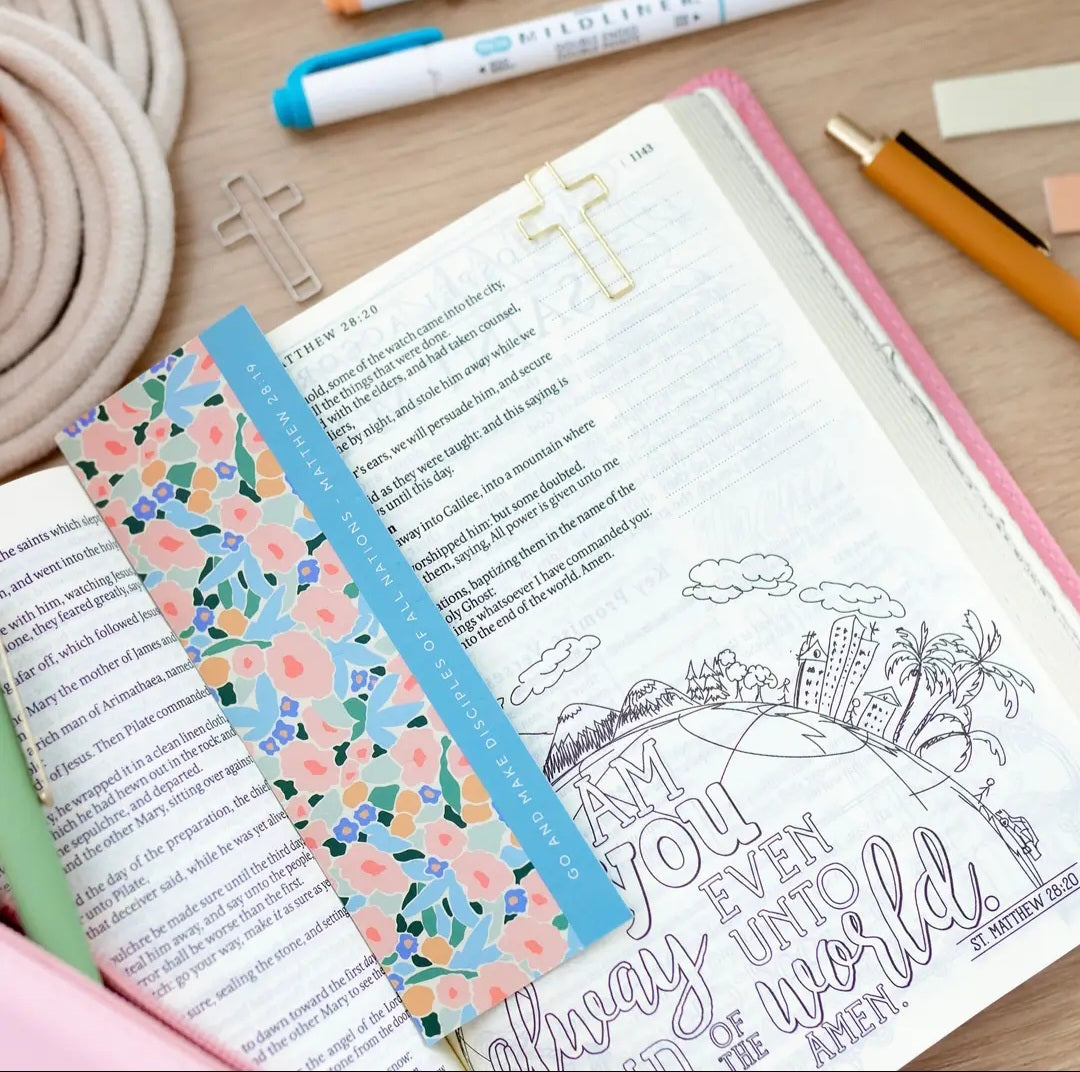 MILDLINER
DOUBLE ENDED
1143
TTHEW 28:20
hold, some of the watch came into the city,
ll the things that were done.
with the elders, and had taken counsel,
liers,
me by night, and stole him away while we
r's ears, we will persuade him, and secure
did as they were taught: and this saying is
s until this day.
away into Galilee, into a mountain where
orshipped him: but some doubted.
them, saying, All power is given unto me
ations, baptizing them in the name of the
oly Ghost:
ings whatsoever I have commanded you:
nto the end of the world. Amen.
GO AND MAKE DISCIPLES OF ALL NATIONS - MATTHEW 28:19
he saints which slept
n, and went into the holy
e with him, watching Jesus
one, they feared greatly, say
afar off, which followed Jesus
Mary the mother of James and
rich man of Arimathaea, named
of Jesus. Then Pilate commanded
y, he wrapped it in a clean linen cloth
hich he had hewn out in the rock: and
e sepulchre, and departed.
and the other Mary, sitting over against
d the day of the preparation, the chief
unto Pilate,
that deceiver said, while he was yet alive
ulchre be made sure until the third day
teal him away, and say unto the people,
rror shall be worse than the first.
ch: go your way, make it as sure as ye
sure, sealing the stone, and setting
to dawn toward the first day
ad the other Mary to see the
the angel of the Lord
tone from the door
now:
I AM
YOU
always
EVEN
UNTO
world.
OF
THE
AMEN.
ST. MATTHEW 28:20